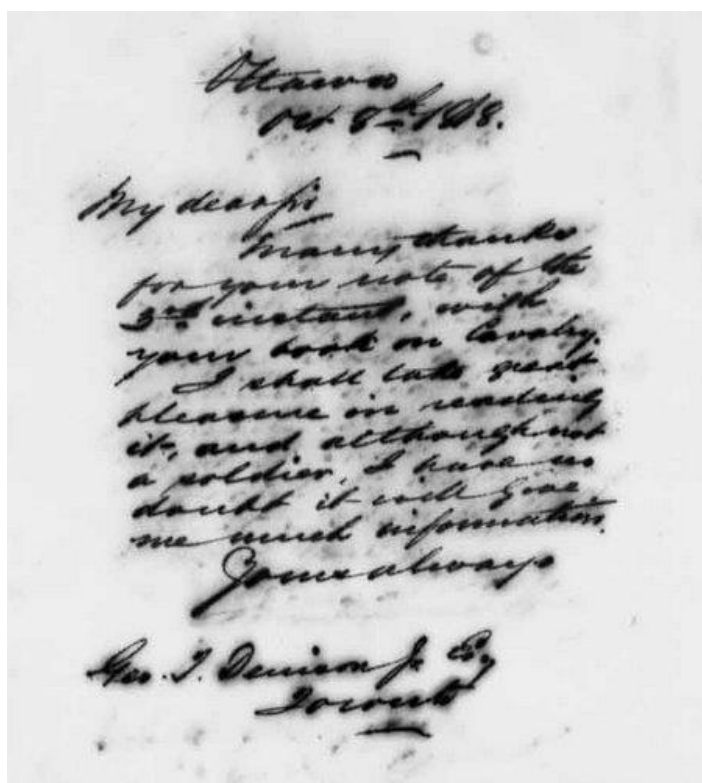 Ottawa
Oct 8th 1868.
My dear Sir
Many thanks
for your note of the
3rd instant, with
your book on Cavalry.
I shall take great
pleasure in reading
it, and although not
a soldier, I have no
doubt it will give
me much information.
Yours always
Geo. T. Denison Jr Esq
Toronto